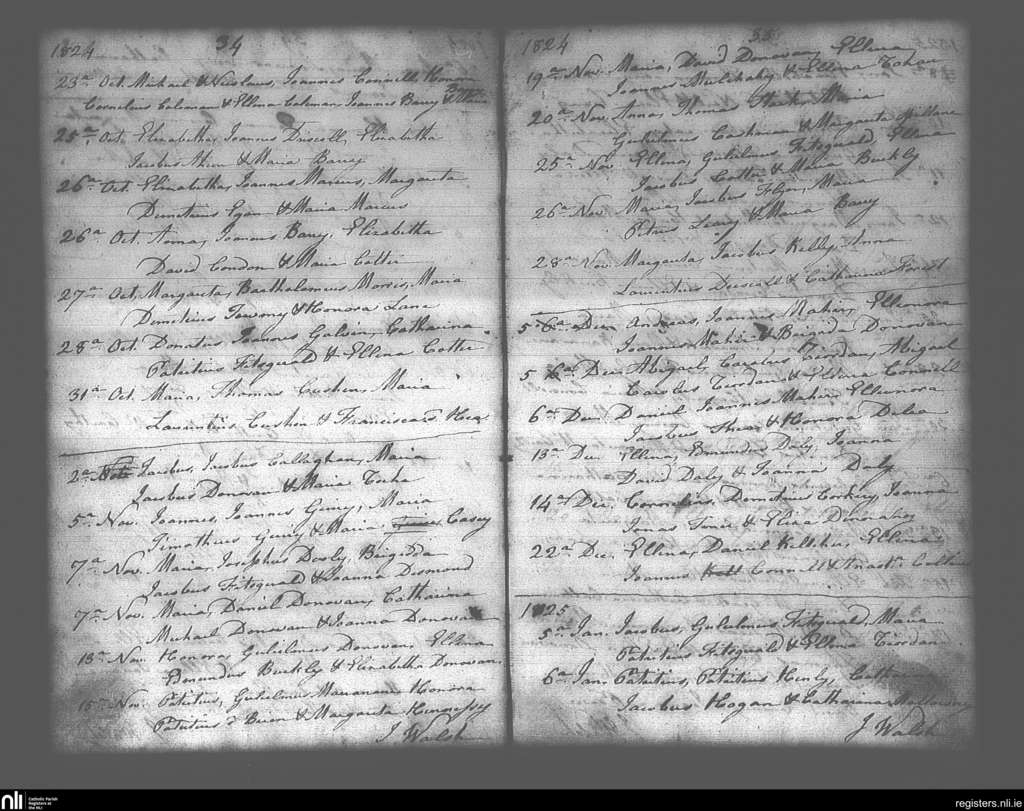 1824
34
23a Oct. Michael & Nicolaus, Joannes Connell, Honora
Cornelius Colman & Ellena Colman Joannes Barry &
25a Oct. Elizabetha, Joannes Driscoll, Elizabetha
Jacobus Ahern & Maria Barry
26a Oct. Elizabetha, Joannes Marcus, Margareta
Demetrius Egan & Maria Marcus
26a Oct. Anna, Joannes Barry, Elizabetha
David Condon & Maria Cotter
27a Oct. Margareta, Bartholomeus Morris, Maria
Demetrius & Honora Lane
28a Oct. Donatus, Joannes Galvin, Catharina
Patritius Fitzgerald & Ellena Cotter
31a Oct. Maria, Thomas Cushen, Maria
Laurentius Cushen & Francisca
2a Jacobus, Jacobus Callaghan, Maria
Jacobus Donovan & Maria
5a Nov. Joannes, Joannes Guiry, Maria
Timothius Guiry & Maria Casey
7a Nov. Maria, Josephus Dooly, Brigidda
Jacobus Fitzgerald & Joanna Desmond
7a Nov. Maria, Daniel Donovan, Catharina
Michael Donovan & Joanna Donovan
13a Nov. Honora, Gulielmus Donovan, Ellena
Edmundus Buckly & Elizabetha Donovan
15a Nov. Patritius, Gulielmus Honora
Patritius & Margareta Hennessy
J Walsh
1824
35
19a Nov. Maria, David Donovan, Ellena
Joannes Mulchahy & Ellena Cohen
20a Nov. Anna, Thomas Maria
Gulielmus Cashman & Margareta Spillane
25a Nov. Ellena, Gulielmus Fitzgerald, Ellena
Jacobus Cotter & Maria Buckly
26a Nov. Maria, Jacobus Flyn, Maria
Petrus Leary & Maria Barry
28a Nov. Margareta, Jacobus Kelly, Anna
Laurentius Driscoll & Catharina Forest
5 6a Decr Andreas, Joannes Mahir, Ellenora
Joannes Mahir & Brigida Donovan
5 6a Dec. Abigail, Carolus Riordan, Abigail
Carolus Riordan & Ellena Connell
6a Dec. Daniel, Joannes Mahir, Ellenora
Jacobus Shea & Honora Dalea
13a Dec. Ellena, Edmundus Daly, Joanna
David Daly & Joanna Daly
14a Dec. Cornelius, Demetrius Corkery, Joanna
Jonas & Eliza
22a Dec. Ellena, Daniel Ellena
Joannes Connell & Anast. Collins
1825
5a Jan. Jacobus, Gulielmus Fitzgerald, Maria
Patritius Fitzgerald & Ellena Riordan
6a Jan. Patritius, Patritius Henly, Catharina
Jacobus Hogan & Catharina
J Walsh
nli
Catholic Parish
Registers at
the NLI
registers.nli.ie